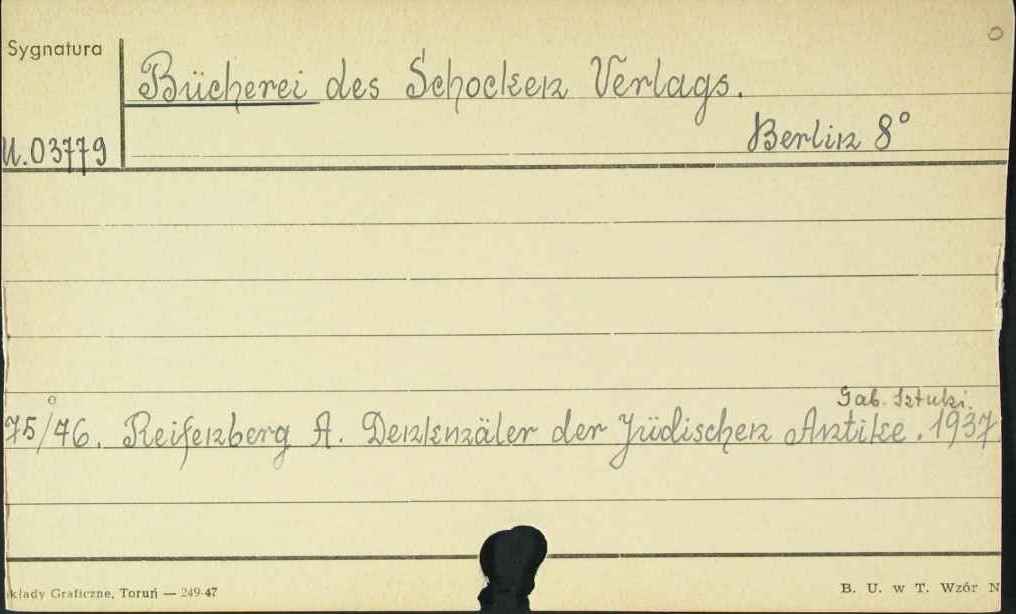 Sygnatura
Bücherei des Schocken Verlags.
U.03779
Berlin 8°
Gab. Sztuki.
75/76. Reifenberg A. Denkmäler der Jüdischen Antike. 1937.
kłady Graficzne, Toruń — 249-47
B. U. w T. Wzór N